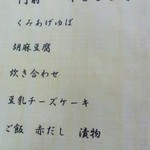 くみあげゆば
胡麻豆腐
炊き合わせ
豆乳チーズケーキ
ご飯 赤だし 漬物